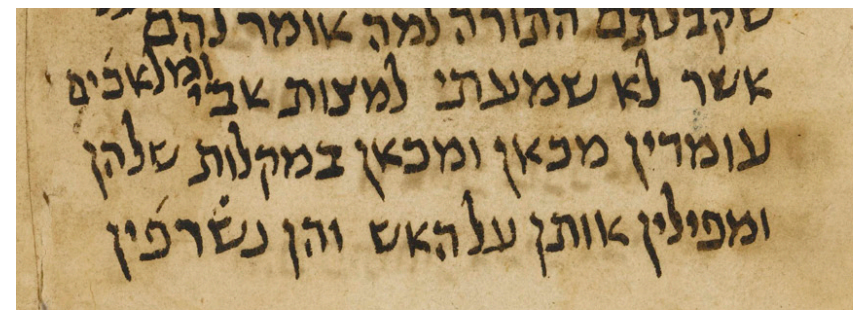 שקבלתם התורה למה אומר להם
אשר לא שמעתי למצות אבי ומלאכים
עומדין מכאן ומכאן במקלות שלהן
ומפילין אותן על האש והן נשרפין